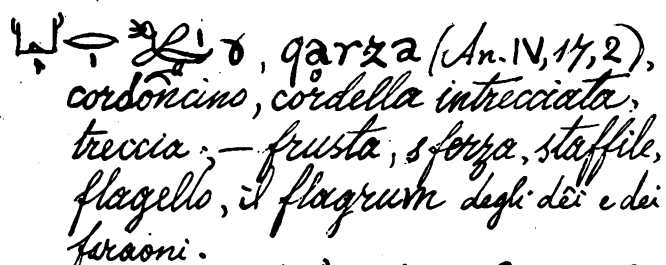 , qårza (An. IV, 17, 2),
cordoncino, cordella intrecciata,
treccia; — frusta, sferza, staffile,
flagello, il flagrum degli dêi e dei
faraoni.